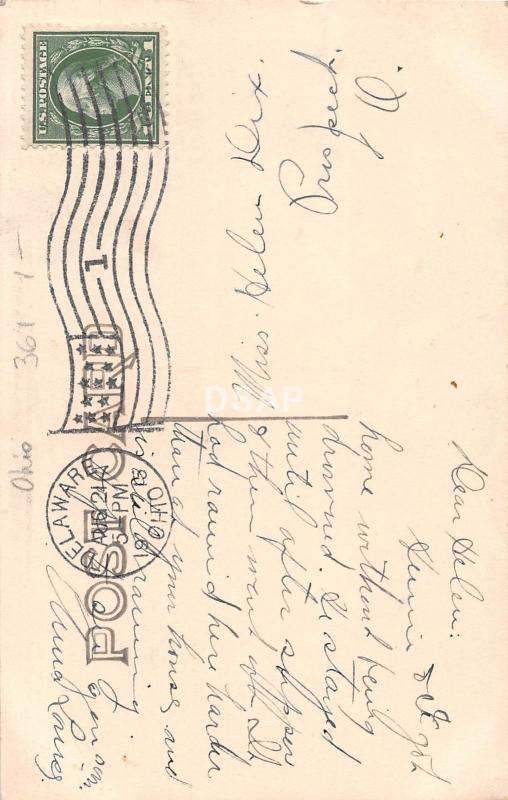 POST CARD
U.S. POSTAGE
1 CENT 1
1
DELAWARE
AUG 24
5 PM
OHIO
Dear Helen:
& I got
home without being
drowned. It stayed
until after supper
then went off. It
had rained here harder
than at your house, and
is still raining
Anna Louise
Miss. Helen Dix.
Prospect,
O.
Ohio
361
1 —
DSAP